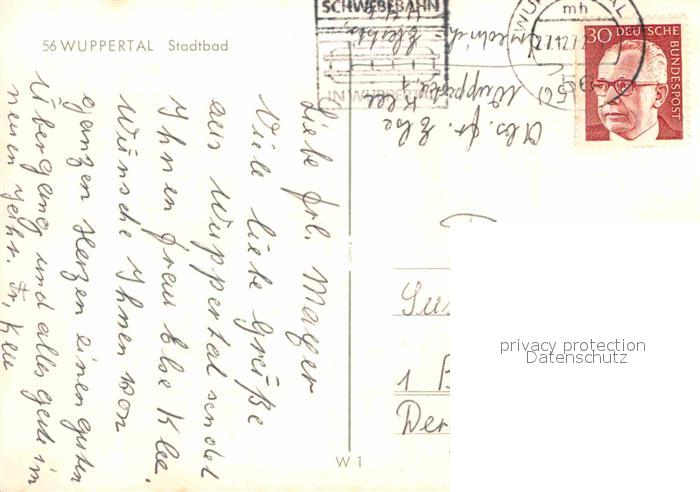 56 WUPPERTAL Stadtbad
SCHWEBEBAHN
IN WUPPERTAL
WUPPERTAL
mh
27.12.7
56
30 DEUTSCHE
BUNDESPOST
Abs. Fr. Else
Klee
56 Wuppertal 1
Friedrich-
Liebe Frl. Mayer
Viele liebe Grüße
aus Wuppertal sendet
Ihnen Frau Else Klee.
Wünsche Ihnen von
ganzen Herzen einen guten
Übergang und alles gute im
neuen Jahr. Fr. Klee
1 B
Ber
W 1
privacy protection
Datenschutz